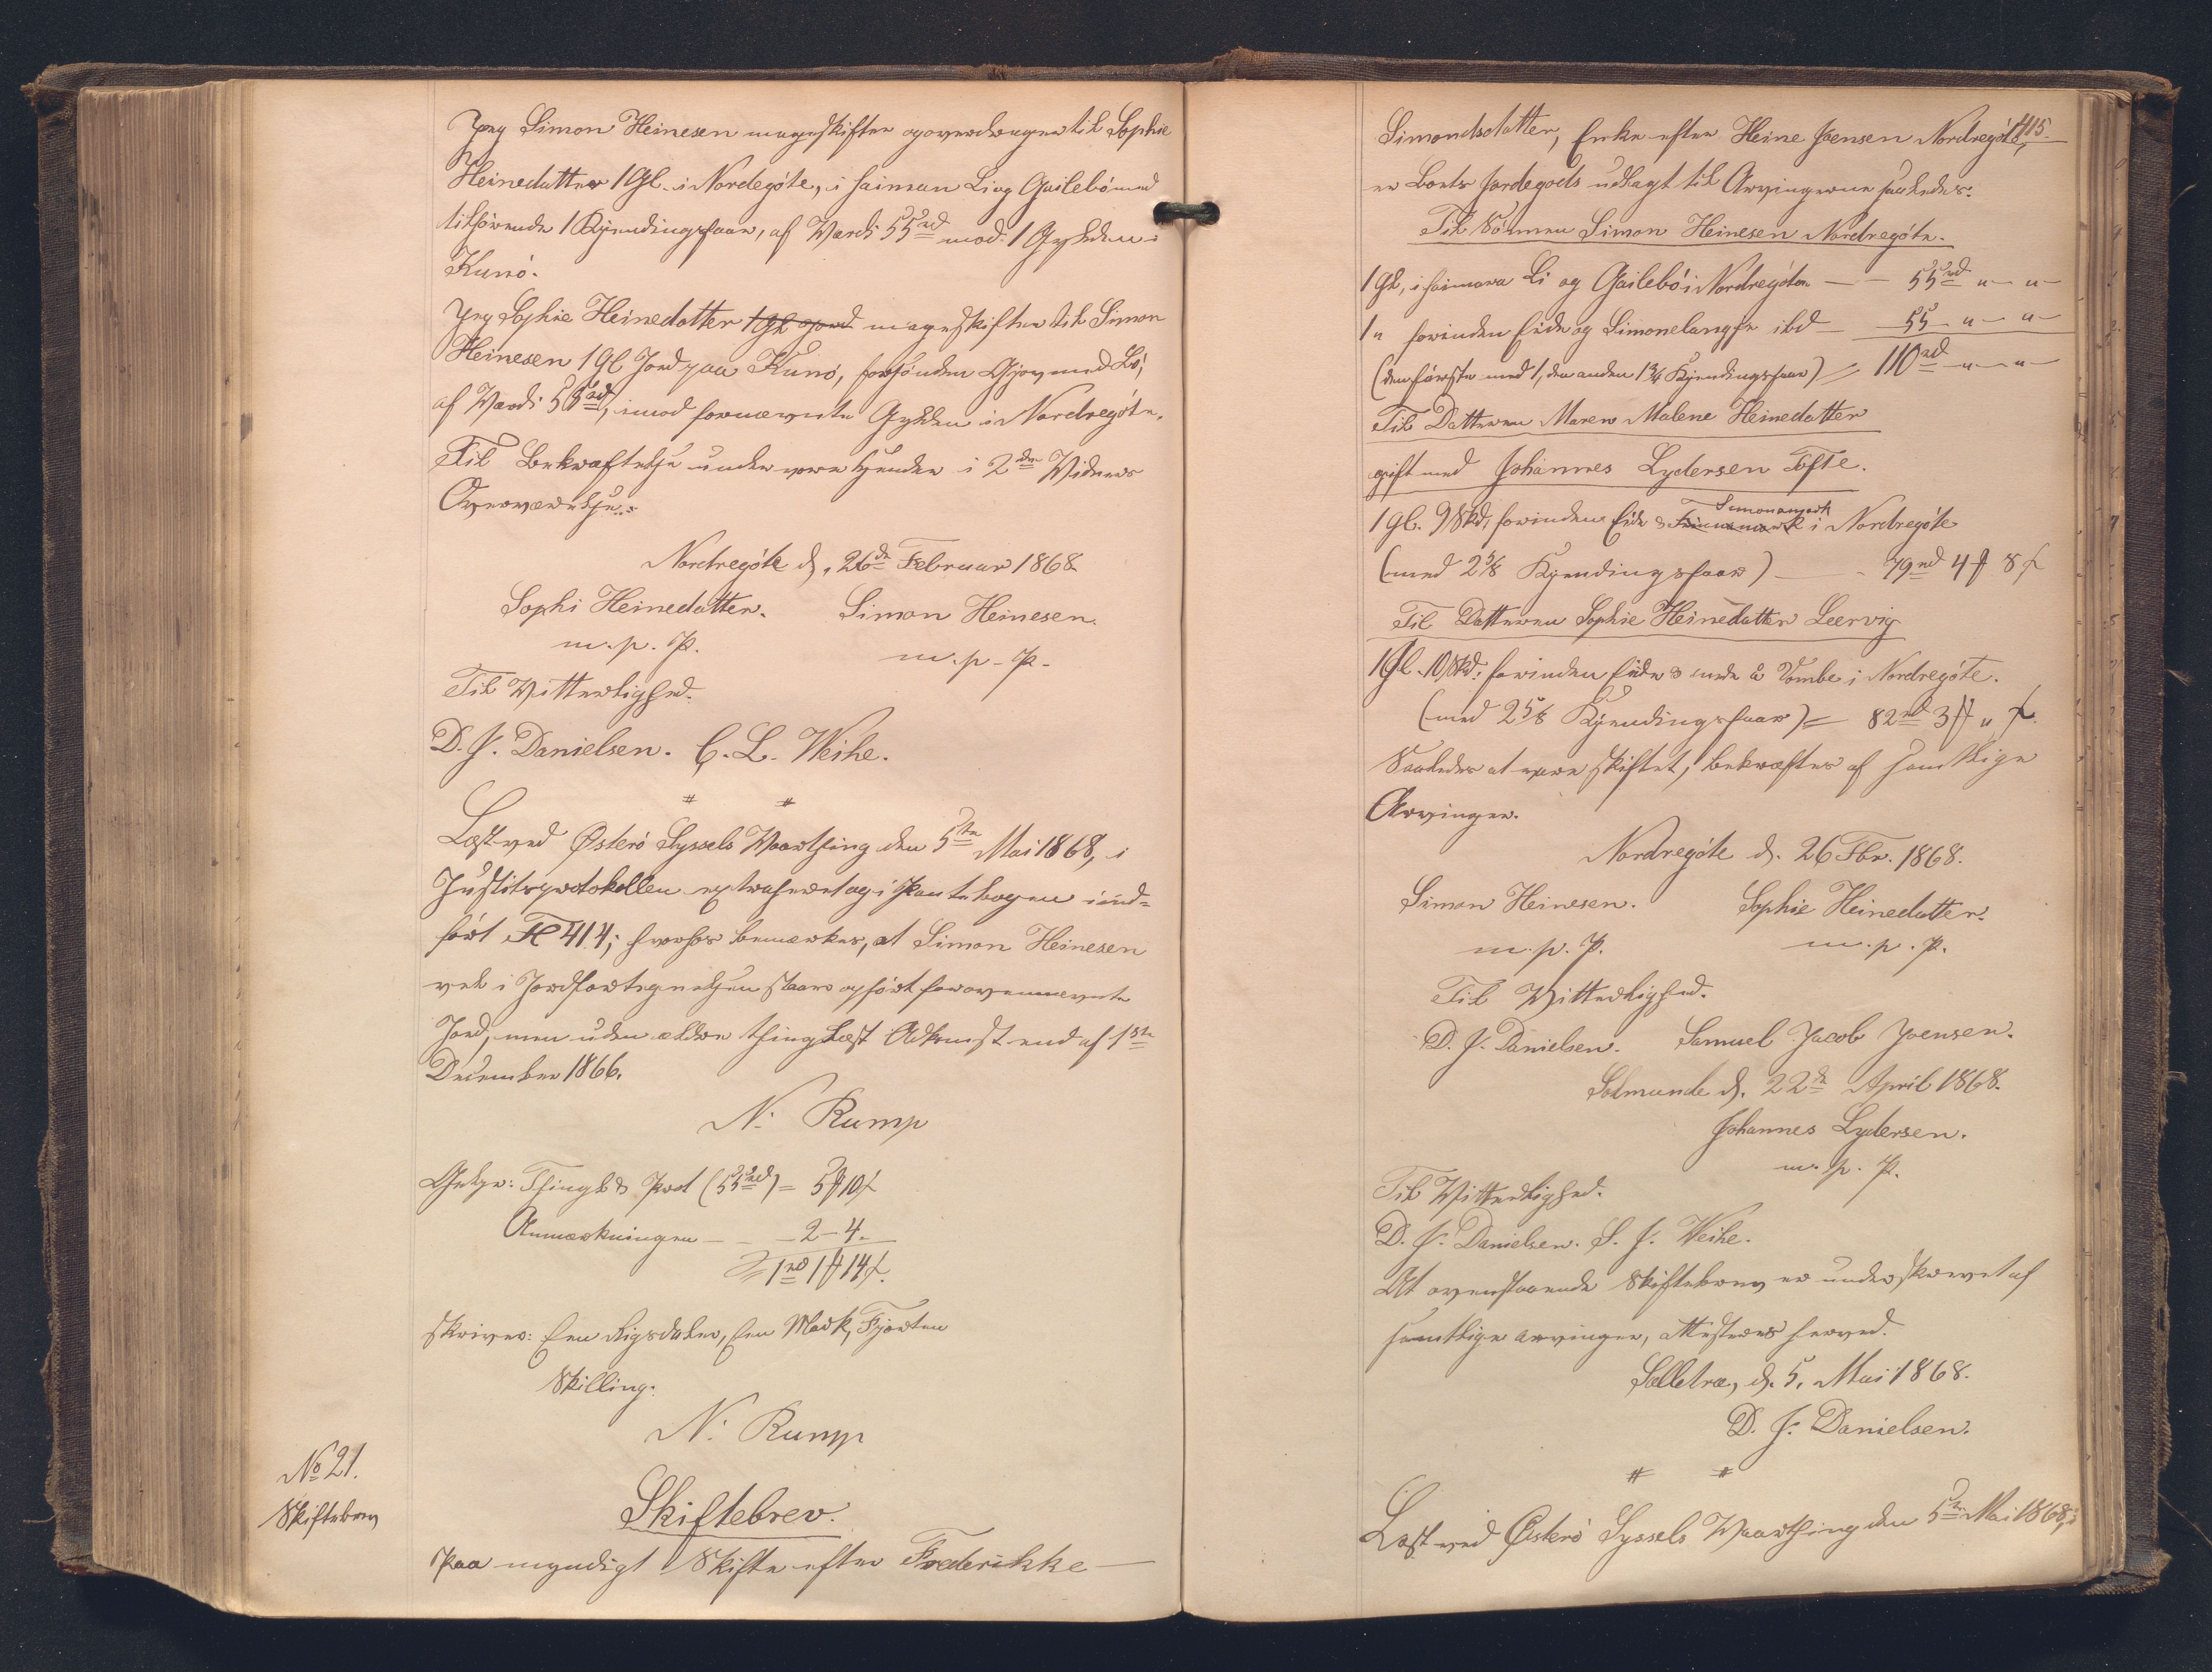 Jeg Simon Heinesen mageskifter og overdrager til Sophie
Heinedatter 1 Gl. i Nordregóte, i haimara Li og Gailebó med
tilhørende 1 Kjendingsfaar, af Værdi 55 rd mod 1 Gylden i
Kunó.
Jeg Sophie Heinedatter 1 Gl Jord mageskifter til Simon
Heinesen 1 Gl Jord paa Kunó, Gjov med Bó,
af Værdi 55 rd, imod fornævnte Gylden i Nordregóte.
Til Bekræftelse under vore Hænder i 2de Vidners
Overværelse.
Nordregóte d. 26de Februar 1868.
Sophi Heinedatter. Simon Heinesen.
m. p. P. m. p. P.
Til Vitterlighed.
D. J. Danielsen. C. L. Weihe.
# #
Læst ved Østerö Syssels Vaarthing den 5te Mai 1868, i
Justitsprotokollen extraheret og i Pantebogen ind-
fört Fol 414; hvorhos bemærkes, at Simon Heinesen
vel i Jordfortegnelsen staar opfört for ovennævnte
Jord, men uden ældre thinglæst Adkomst end af 1ste
December 1866.
N. Rump
Gebyr: Thingl. & Prot (55 rd) = 5 ₰ 10 ẞ
Anmærkningen — 2 — 4.
= 1 rd 1 ₰ 14 ẞ.
skriver: Een Rigsdaler, Een Mark, Fjorten
Skilling.
N. Rump
No 21.
Skiftebrev
Skiftebrev.
Paa myndigt Skifte efter Frederikke
415.
Simondsdatter, Enke efter Heine Joensen Nordregóte,
er Boets Jordegods udlagt til Arvingerne saaledes:
Til Sönnen Simon Heinesen Nordregóte.
1 Gl, i haimara Li og Gailebó i Nordregóte — 55 rd " — " —
1 " forinden Eide og Simonelangfe ibd — 55 — " — " —
(den förste med 1, den anden 1¾ Kjendingsfaar) = 110 rd — " — " —
Til Datteren Maren Malene Heinedatter
gift med Johannes Lydersen Tofte.
1 Gl. 9 Skd, forinden Eide & Simonsmark i Nordregóte
(med 2⅝ Kjendingsfaar) — 79 rd 4 ₰ 8 ẞ
Til Datteren Sophie Heinedatter Leervig
1 Gl. 10 Skd: forinden Eide & inde á Tombe i Nordregóte.
(med 2⅝ Kjendingsfaar) = 82 rd 3 ₰ " ẞ.
Saaledes at være skiftet, bekræftes af samtlige
Arvinger.
Nordregóte d. 26 Fbr. 1868.
Simon Heinesen. Sophie Heinedatter.
m. p. P. m. p. P.
Til Vitterlighed.
D. J. Danielsen. Samuel Jacob Joensen.
Solmunde d. 22de April 1868.
Johannes Lydersen.
m. p. P.
Til Vitterlighed.
D. J. Danielsen. S. J. Weihe.
At ovenstaaende Skiftebrev er underskrevet af
samtlige Arvinger, attesteres herved.
Selletræ, d. 5. Mai 1868.
D. J. Danielsen.
# #
Læst ved Österö Syssels Vaarthing den 5te Mai 1868, i